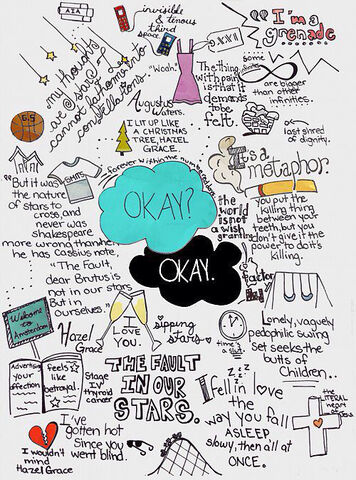 AIA
invisible
& tenous
third
space
"I'm a
grenade"
my thoughts
are stars I
cannot fathom into
constellations.
"Wooh."
The thing
with pain
is that it
demands
to be
felt.
some
are bigger
than other
infinities.
Augustus
Waters.
I LIT UP LIKE
A CHRISTMAS
TREE, HAZEL
GRACE.
last shred
of dignity.
forever within the numbered days
It's a
metaphor.
SHIRTS
"But it was
the nature
of stars to
cross, and
never was
shakespeare
more wrong than when
he has Cassius note,
"The Fault,
dear Brutus is
not in our stars
But in
ourselves."
OKAY?
OKAY.
the
world is
not a
wish
granting
factory
you put the
killing thing
between your
teeth, but you
don't give it the
power to do it's
killing.
Welcome
to
Amsterdam
Hazel
Grace
I
LOVE
YOU.
sipping
stars
time's a
slut
Lonely, vaguely
pedophilic swing
Set seeks the
butts of
Children..
Advertising
your
affection
feels
like
betrayal.
Stage
IV
thyroid
cancer
THE FAULT
IN OUR
STARS.
z z z
I fell in love
the
way you fall
ASLEEP
slowy, then all at
ONCE.
the
LITERAL
heart of
Jesus
I've
gotten hot
Since you
went blind.
I wouldn't
mind
Hazel Grace